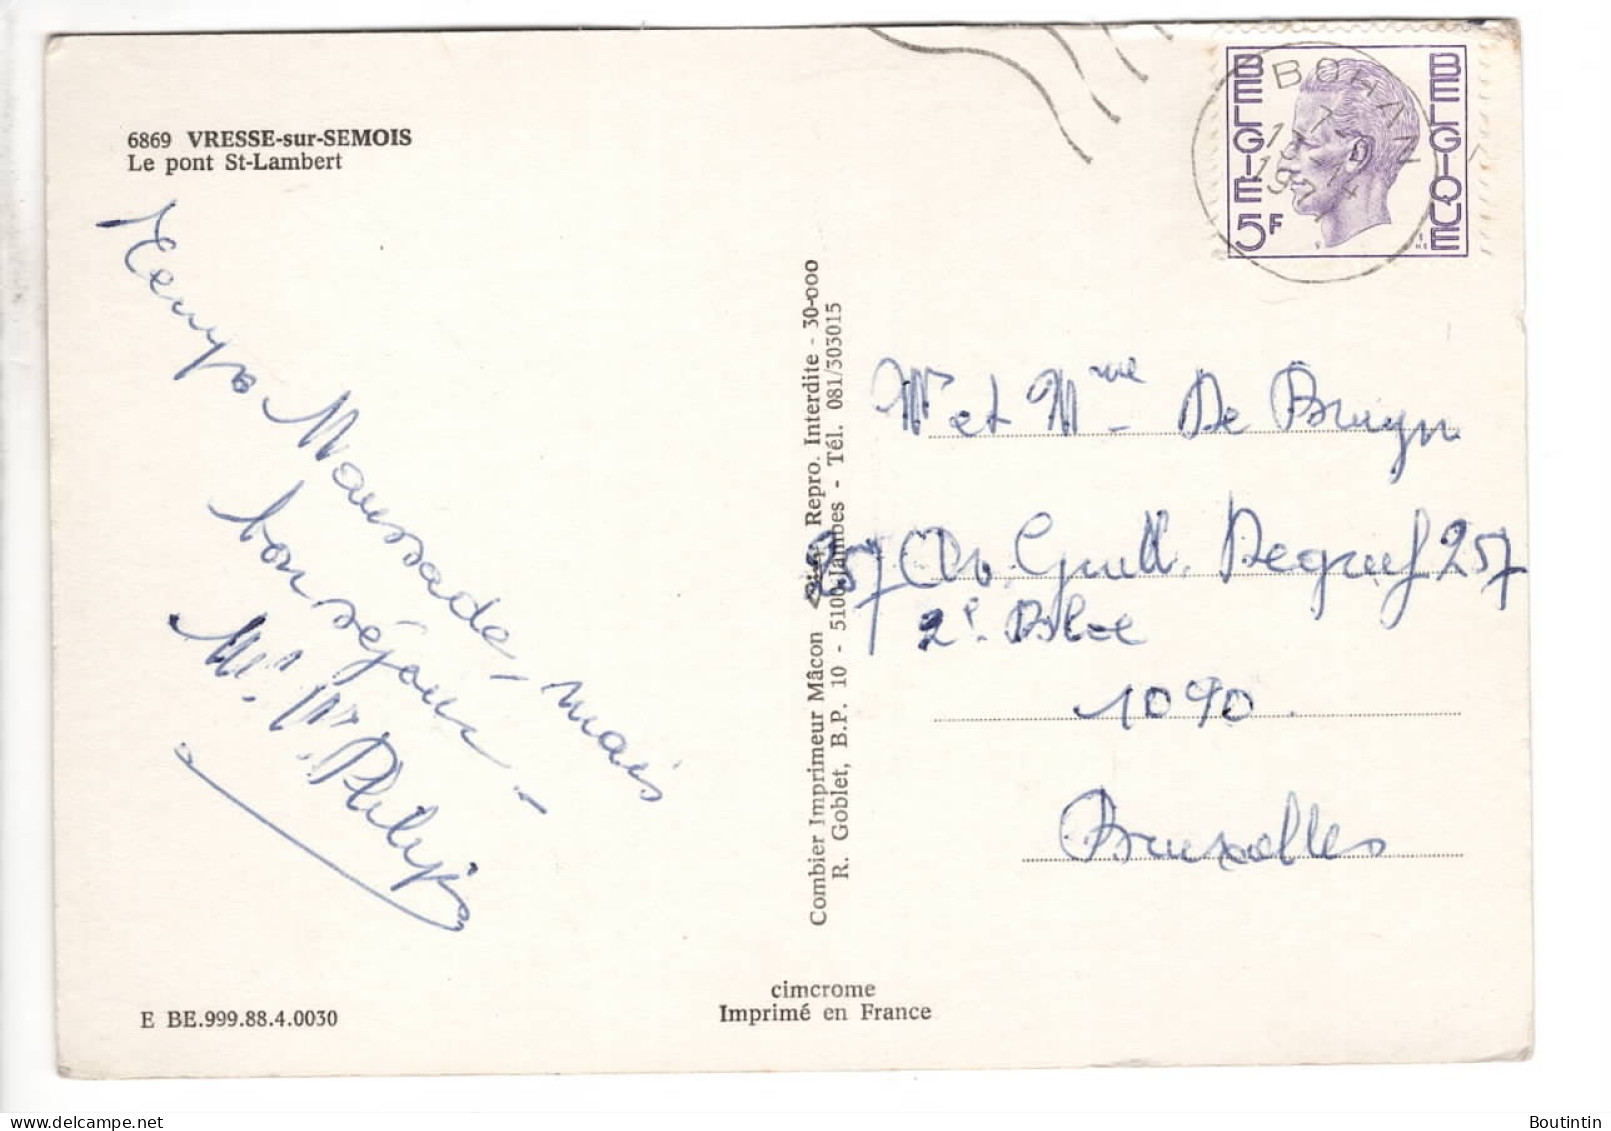 6869 VRESSE-sur-SEMOIS
Le pont St-Lambert
Temps Maussade, mais
bon séjour -
BELGIE
5F
BELGIQUE
BOHAN
Combier Imprimeur Mâcon Repro. Interdite - 30-000
R. Goblet, B.P. 10 - 5100 Jambes - Tél. 081/303015
Mr et Mme De Bruyn
257 Av. Guill. Degreef 257
1090
Bruxelles
cimcrome
Imprimé en France
E BE.999.88.4.0030
Boutintin